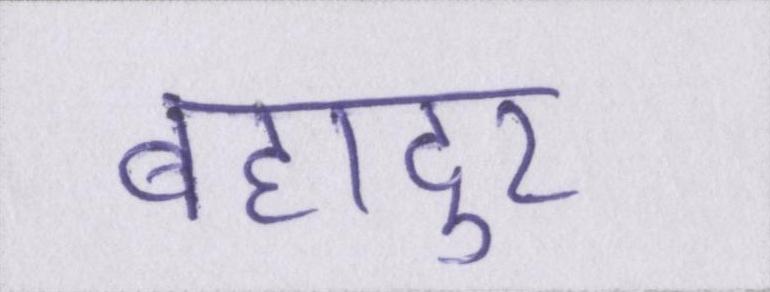 बहादुर